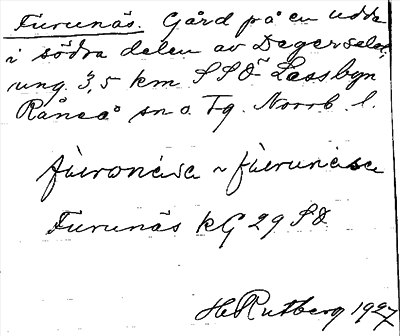 Furunäs. Gård på en udde
i södra delen av Degerselet,
ung. 3,5 km SSO Lassbyn
Råneå sn o. Tg. Norrb. l.
fùronä́sə ~ fùrunä́sə
Furunäs kG 29 SO
H Rutberg 1927